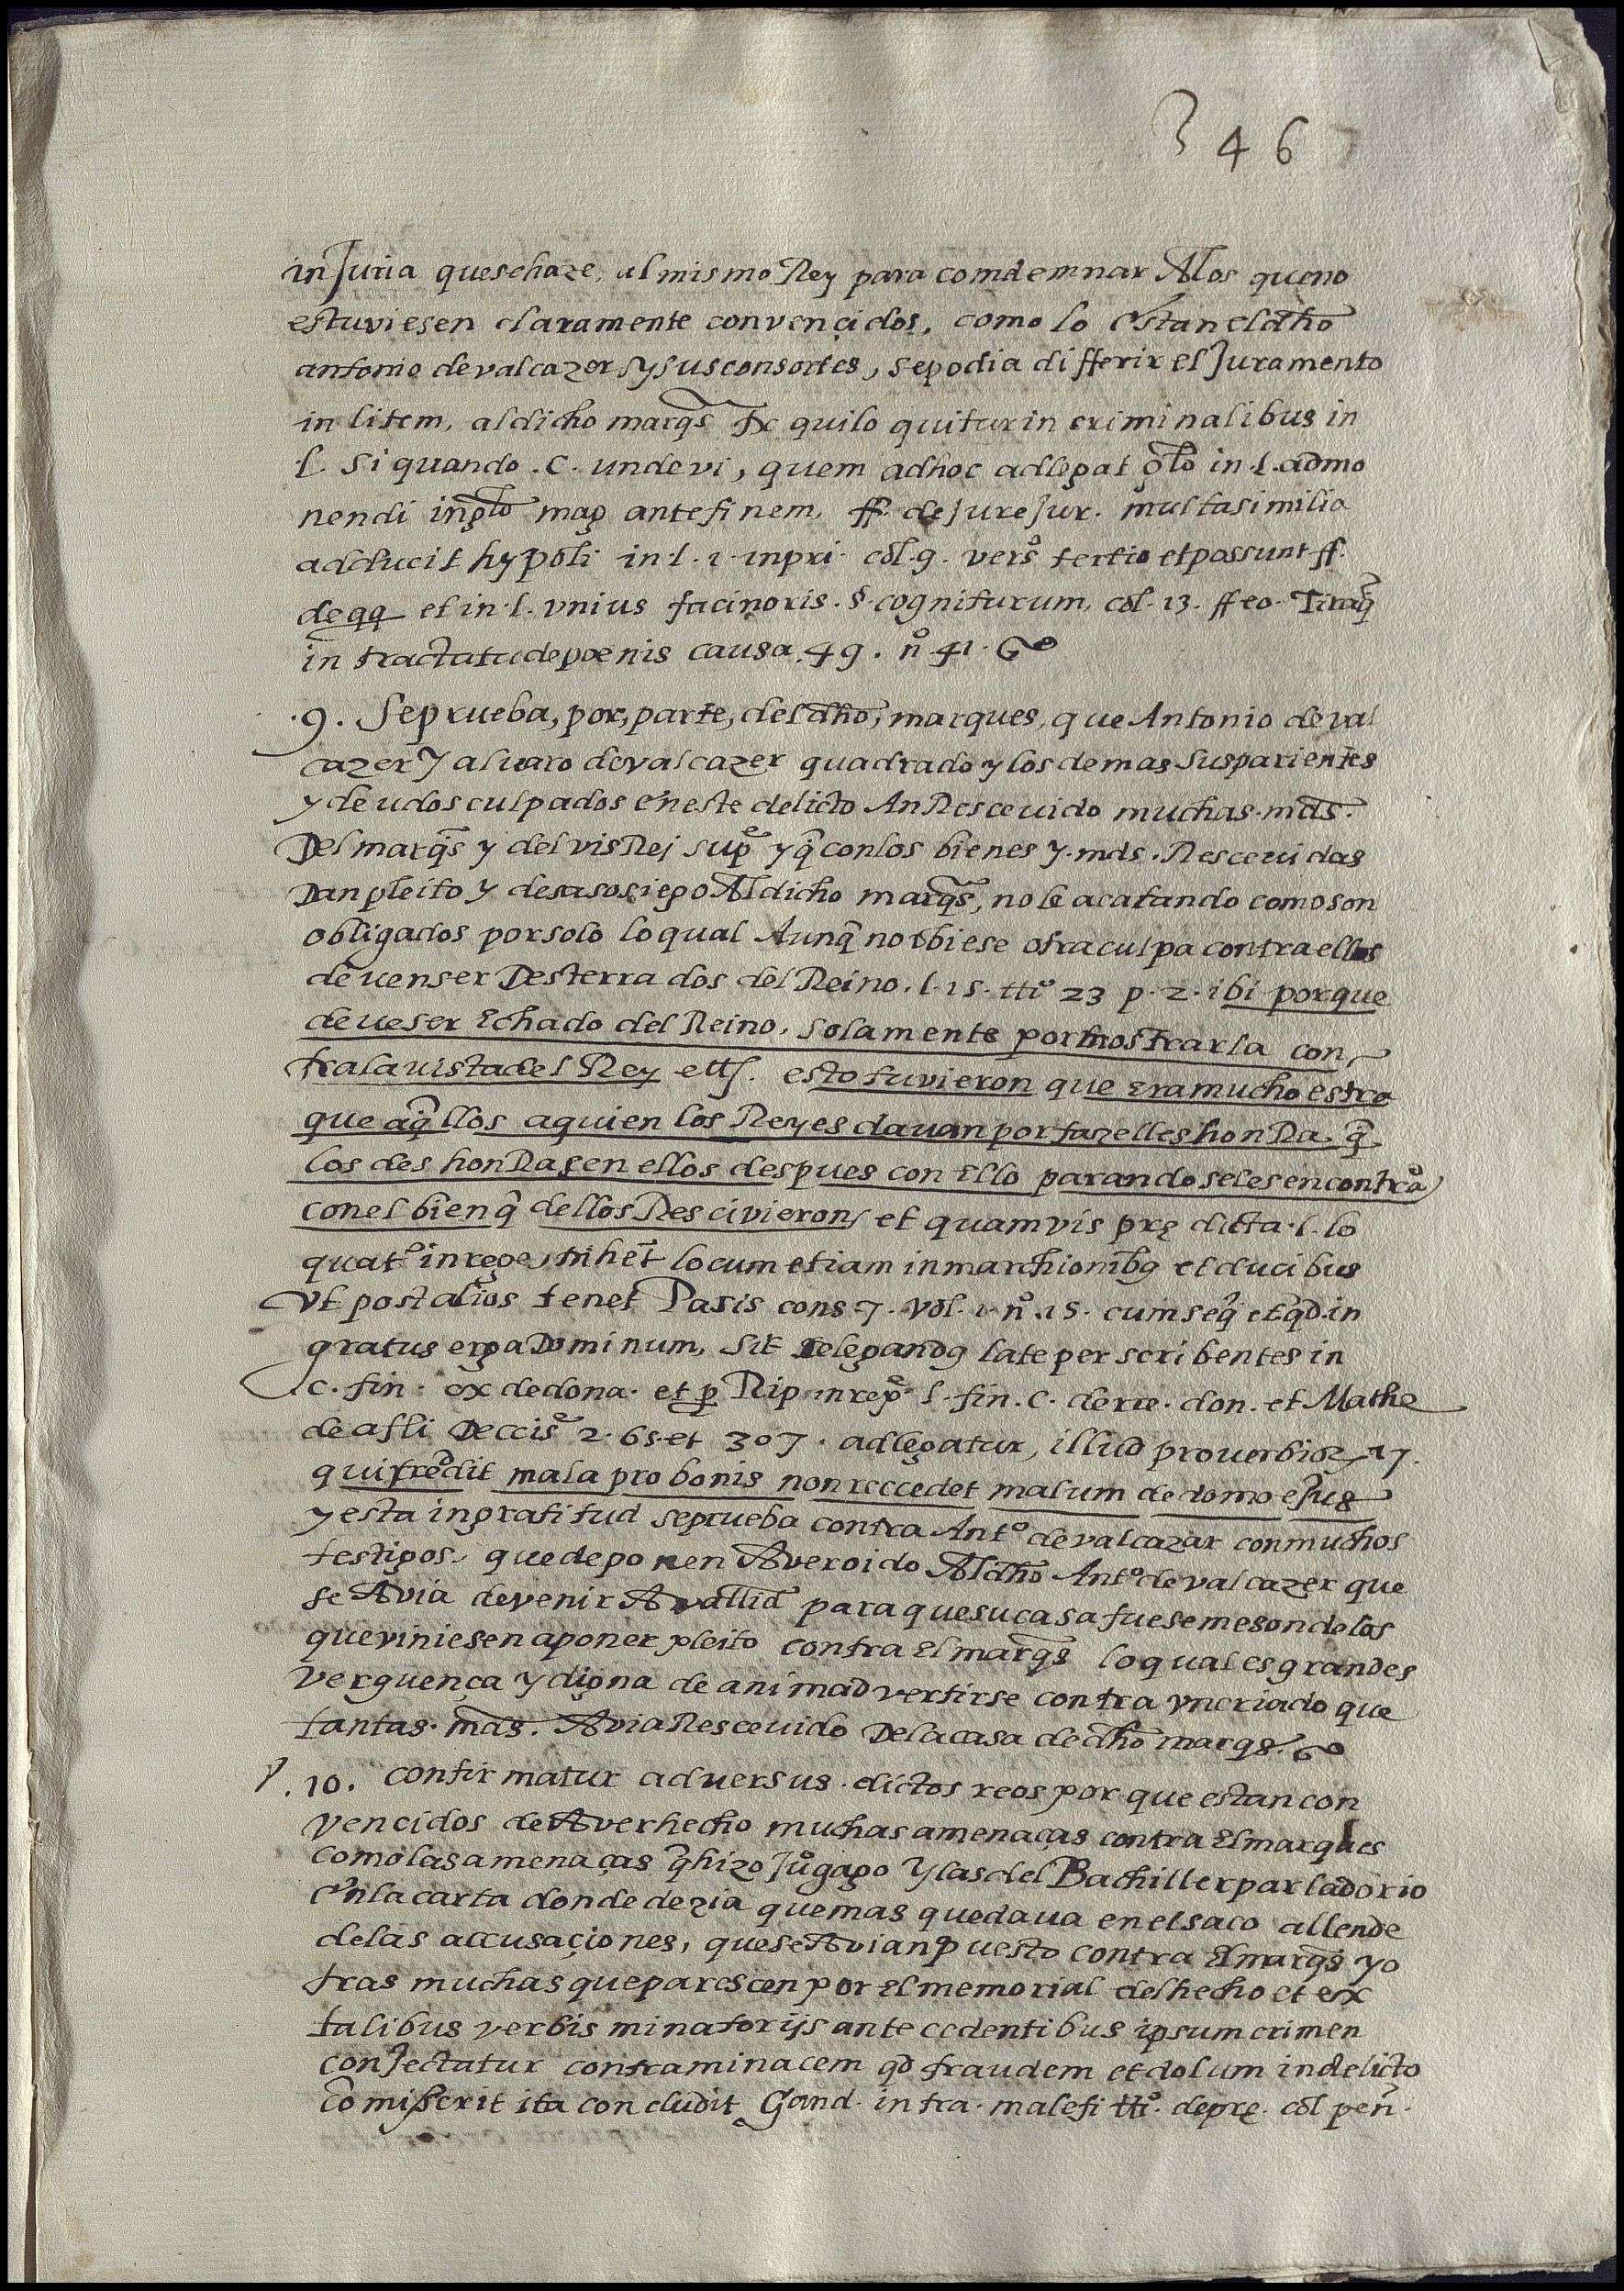 346
inJuria quesehaze, al mismo Rey para comdemnar Alos queno
estuviesen claramente convençidos, como lo estan eldho
antonio devalcazer sysusconsortes, sepodia differir elJuramento
in litem, aldicho marqs Ex quilo quitur in criminalibus in
l. Si quando .C. undevi, quem adhoc adlegat glo in .l. admo
nendi inglo mag antefinem. ff. deJureJur. multasimilia
adducit hypoli in .l. 1. inpri col. 9. vers tertio etpossunt ff.
deqq et in .l. vnius facinoris .§. cogniturum, col. 13. ff eo. Tiraq
in tractatudepoenis causa .49. nº 41.
.9. Seprueba, por, parte, deldho, marques, que Antonio deval
cazer Y aluaro devalcazer quadrado ylosdemas Susparientes
y deudosculpados eneste delicto AnRescevido muchas .mds.
Del marqs y del visRej sup yq conlos bienes y .mds. Rescevidas
Danpleito y desasosiego Aldicho marqs, nole acatando comoson
obligados porsolo loqual Aunq nobiese otraculpa contraellos
devenser Desterrados del Reino. l. 15. ttº 23 p. 2. ibi porque
deveser Echado del Reino, solamente pormostrarla con,
tralavistadel Rey ett. estotuvieron que Eramucho estra
que aqllos aquien los Reyes davan porfazelleshonRa. q
los deshonRasen ellos despues con Ello parandoselesencontra
conel bienq dellosRescivieron, et quamvis prę dicta .l. lo
quat inrege, tn het locum etiam inmarchionibg et ducibus
Vt post alios tenet Paris cons 7. vol. 1. nº 15. cumseq etqd.in
gratus erga Dominum, sit Relegandg late per scribentes in
c. fin. ex dedona. et p Rip inrep l. fin. C. derre. don. et Mathe
deafli Deccis 2.65.et 307. adlegatur, illud proverbior 17.
quireddit mala probonis nonreccedet malum dedomo eJus
yesta ingratitud seprueba contra Antº devalcazar conmuchos
testigos, quedeponen Averoido Aldho Antº devalcazer que
se Avia devenir Avallid paraquesucasafuesemesondelos
queviniesenaponer pleito contra Elmarqs loqualesgrandes
verguença Ydigna de animadvertirse contra yncriado que
tantas .mds. AviaRescevido Delacasa dedho marqs.
.10. Confirmatur adversus .dictos reos por que estancon
vencidos deAverhecho muchasamenaças contra Elmarques
comolasamenaças qhizo Juº gago Ylasdel Bachillerparladorio
enlacarta dondedezia quemas quedava enelsaco allende
delas accusaçiones, queseAvianpuesto contra Elmarqs yo
tras muchasqueparescen por Elmemorial delhecho et ex
talibus verbis minatorijs antecedentibus ipsumcrimen
conJectatur contraminacem qd fraudem etdolum indelicto
comisserit ita concludit Gand. intra. malefi ttº. deprę. col pen.